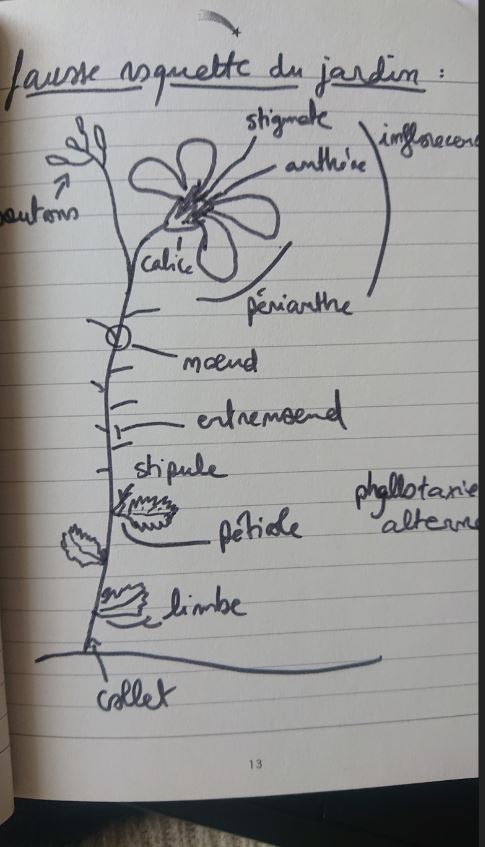 fausse roquette du jardin :
stigmate
inflorescen
anthère
boutons
calice
périanthe
nœud
entrenœud
stipule
phyllotaxie
alterne
pétiole
limbe
collet
13